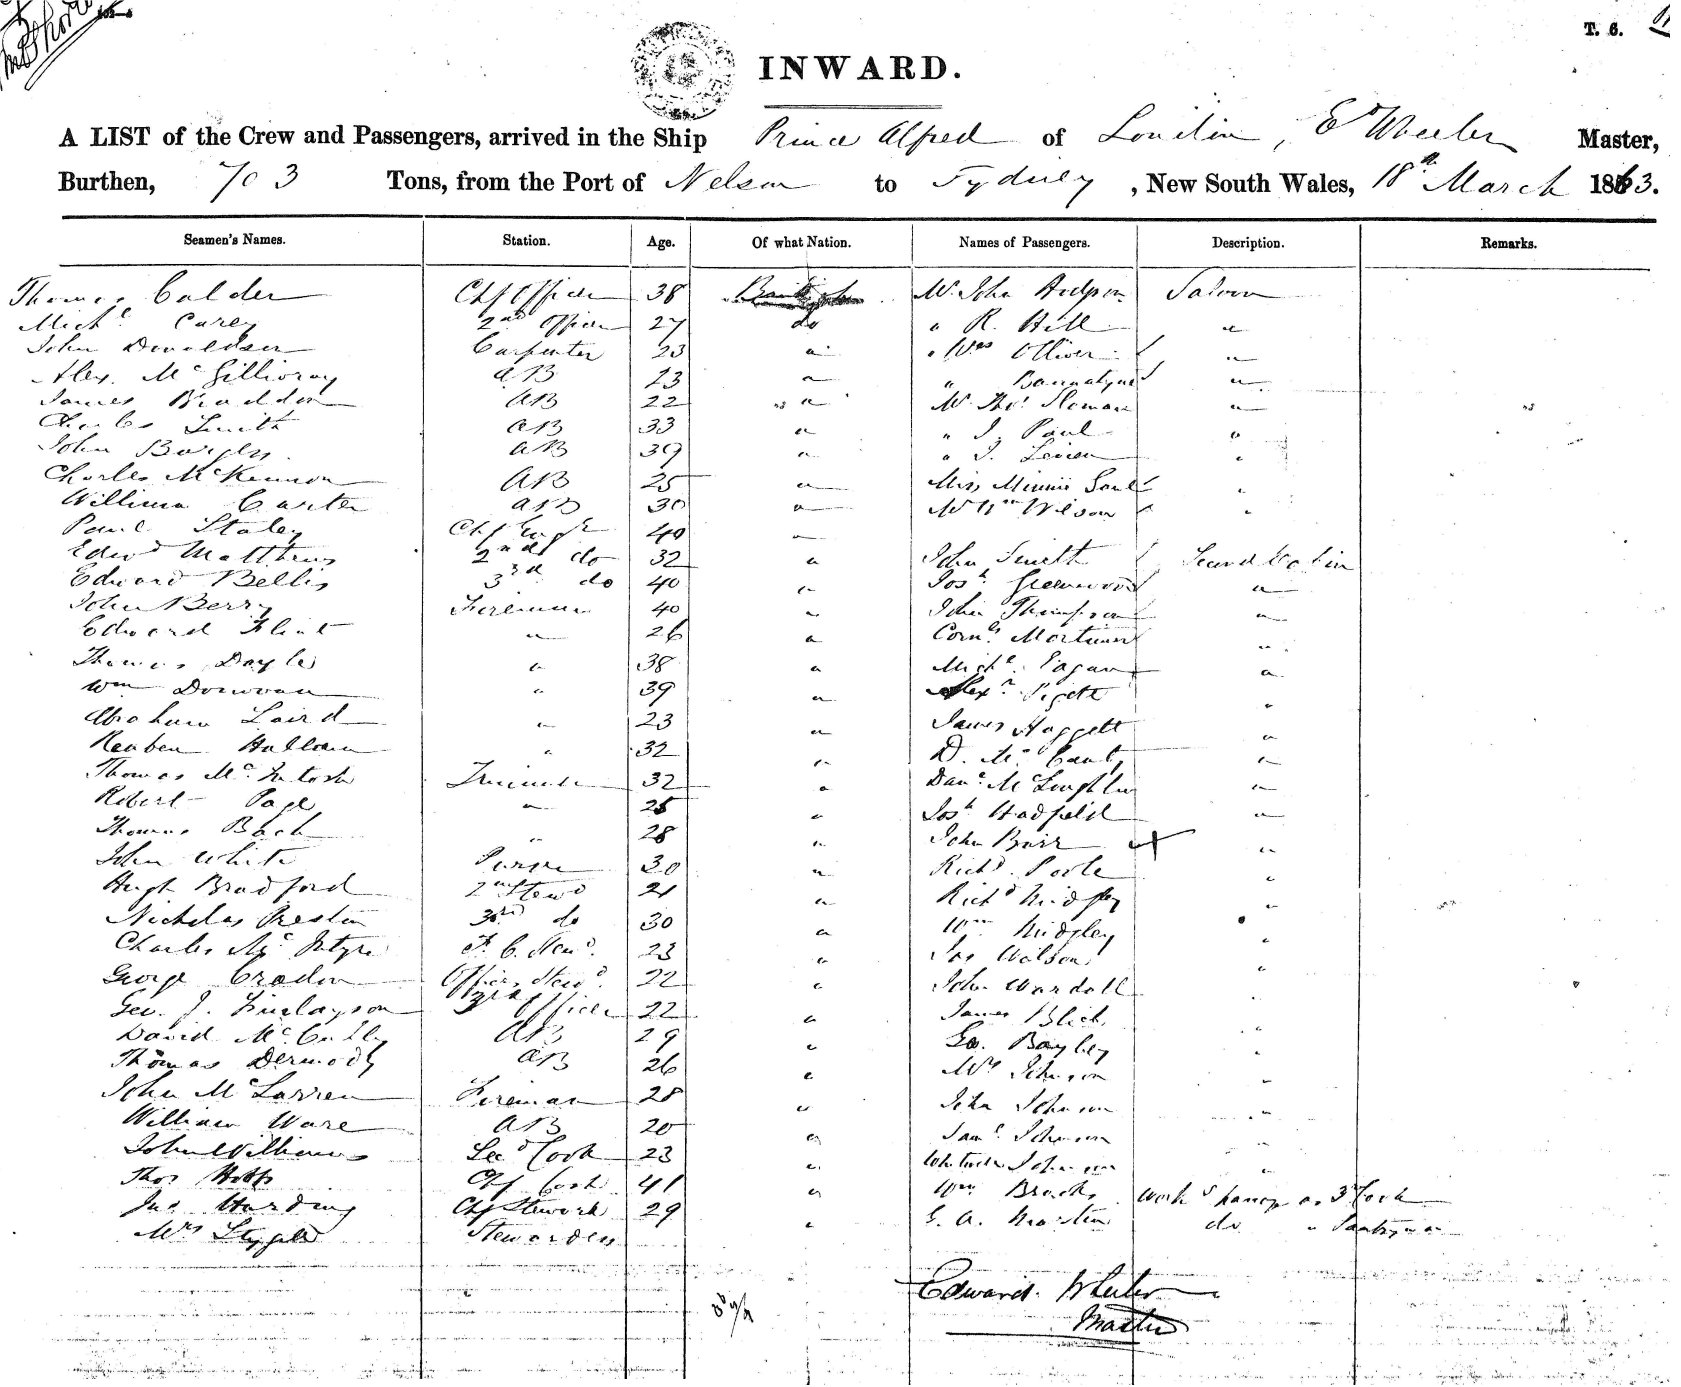 T. 6.
INWARD.
A LIST of the Crew and Passengers, arrived in the Ship Prince Alfred of London, E Wheeler Master,
Burthen, 703 Tons, from the Port of Nelson to Sydney, New South Wales, 18th March 1863.
Seamen's Names. Station. Age. Of what Nation. Names of Passengers. Description. Remarks.
Thomas Calder Chf Officer 38 Mr John Hodgson Saloon
Michl Carey 2nd Officer 27 do " R. Hill "
John Donaldson Carpenter 23 " " Mrs Olliver "
Alex. McGillivray AB 23 " " Bannatyne "
James Braddon AB 22 " Mr Thos Sloman "
Charles Smith AB 33 " " J. Paul "
John AB 39 " " J.
Charles McKennon AB 25 " Miss Minnie "
William Carter AB 30 " Mr Wm Wilson "
Paul Staley Chf Engr 40 "
Edwd Matthews 2nd do 32 " John Smith Second Cabin
Edward Bellis 3rd do 40 " Josh Greenwood "
John Berry Fireman 40 " John Thompson "
Edward Flint " 26 " Corns Mortimer "
Thomas Dayles " 38 " Michl Fagan "
Wm Donovan " 39 " Alexr Pigott "
Abraham Laird " 23 " James Haggett "
Reuben Hallam " 32 " D. McCanty "
Thomas McIntosh Trimmer 32 " Danl McLoughlin "
Robert Page " 25 " Josh Hadfield "
Thomas Bach " 28 " John Barr "
John White 30 " Richd Poole "
Hugh Bradford 2nd Stewd 21 " Richd Midgley "
Nicholas Preston 3rd do 30 " Wm Midgley "
Charles McIntyre F. C. Stewd 23 " Jas Wilson "
George Cradon Officers Stewd 22 " John Wardell "
Geo. J. Finlayson 3rd Officer 22 " James Black "
David McCully AB 29 " Geo. Bayley "
Thomas Dermody AB 26 " Mrs Johnson "
John McLarren Fireman 28 " John Johnson "
William Ware AB 20 " Saml Johnson "
John Williams Secd Cook 23 " Johnson "
Thos Hobbs Chf Cook 41 " Wm Brooks Work passage as 3rd Cook
Jno Harding Chf Steward 29 " G. A. Morton do " Pantryman
Mrs Stewardess
Edward Wheeler
Master